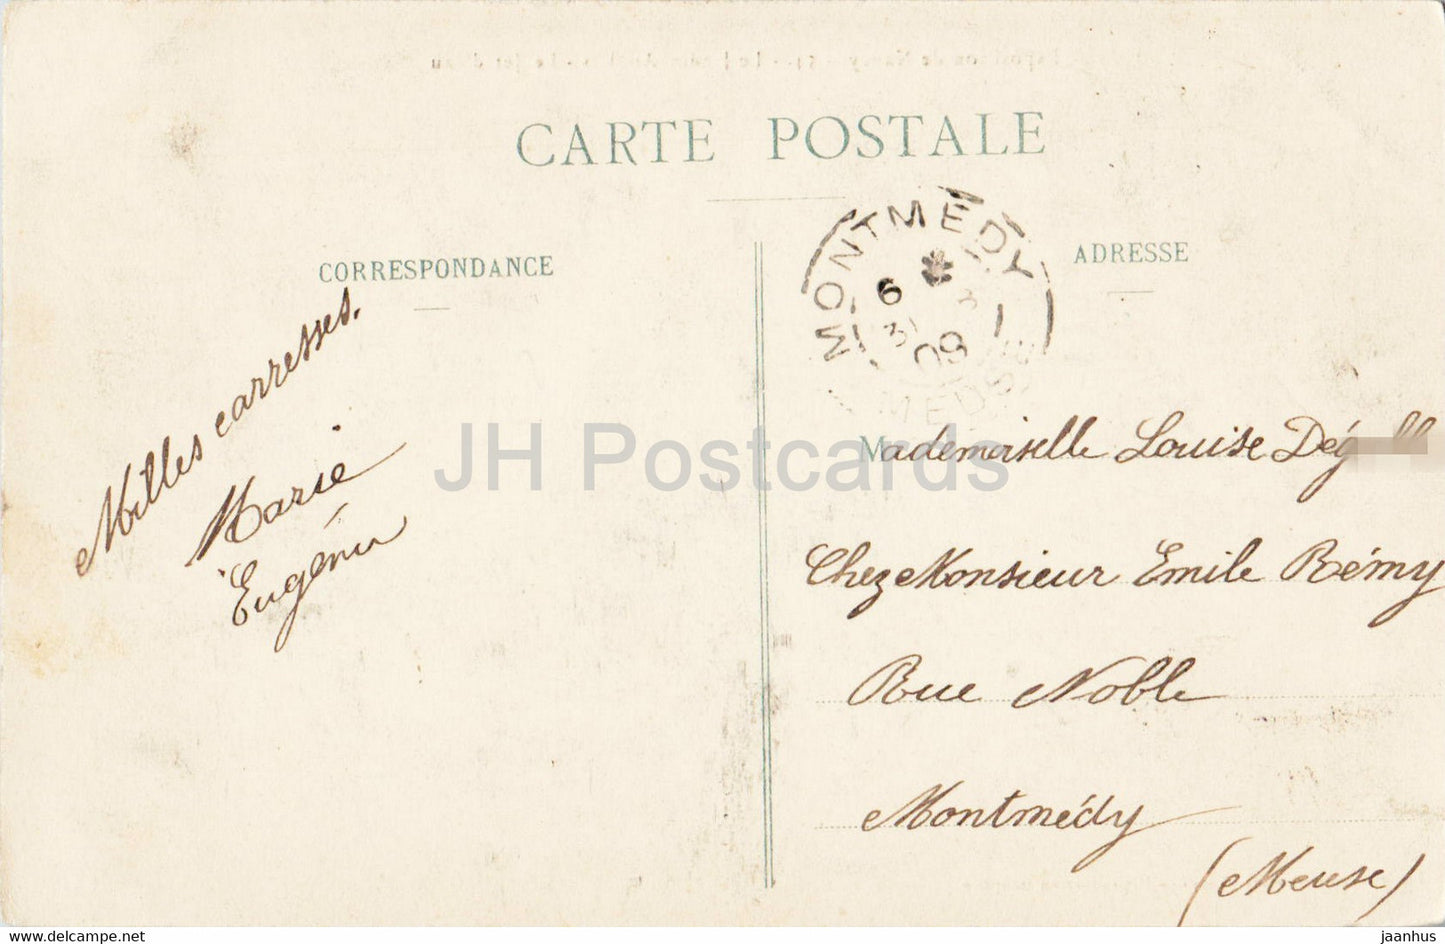 CARTE POSTALE
CORRESPONDANCE
ADRESSE
MONTMEDY
6
31
09
MEUSE
Milles carresses.
Marie
Eugénie
Mademoiselle Louise
Chez Monsieur Emile Rémy
Rue Noble
Montmédy
(Meuse)
JH Postcards
www.delcampe.net
jaanhus